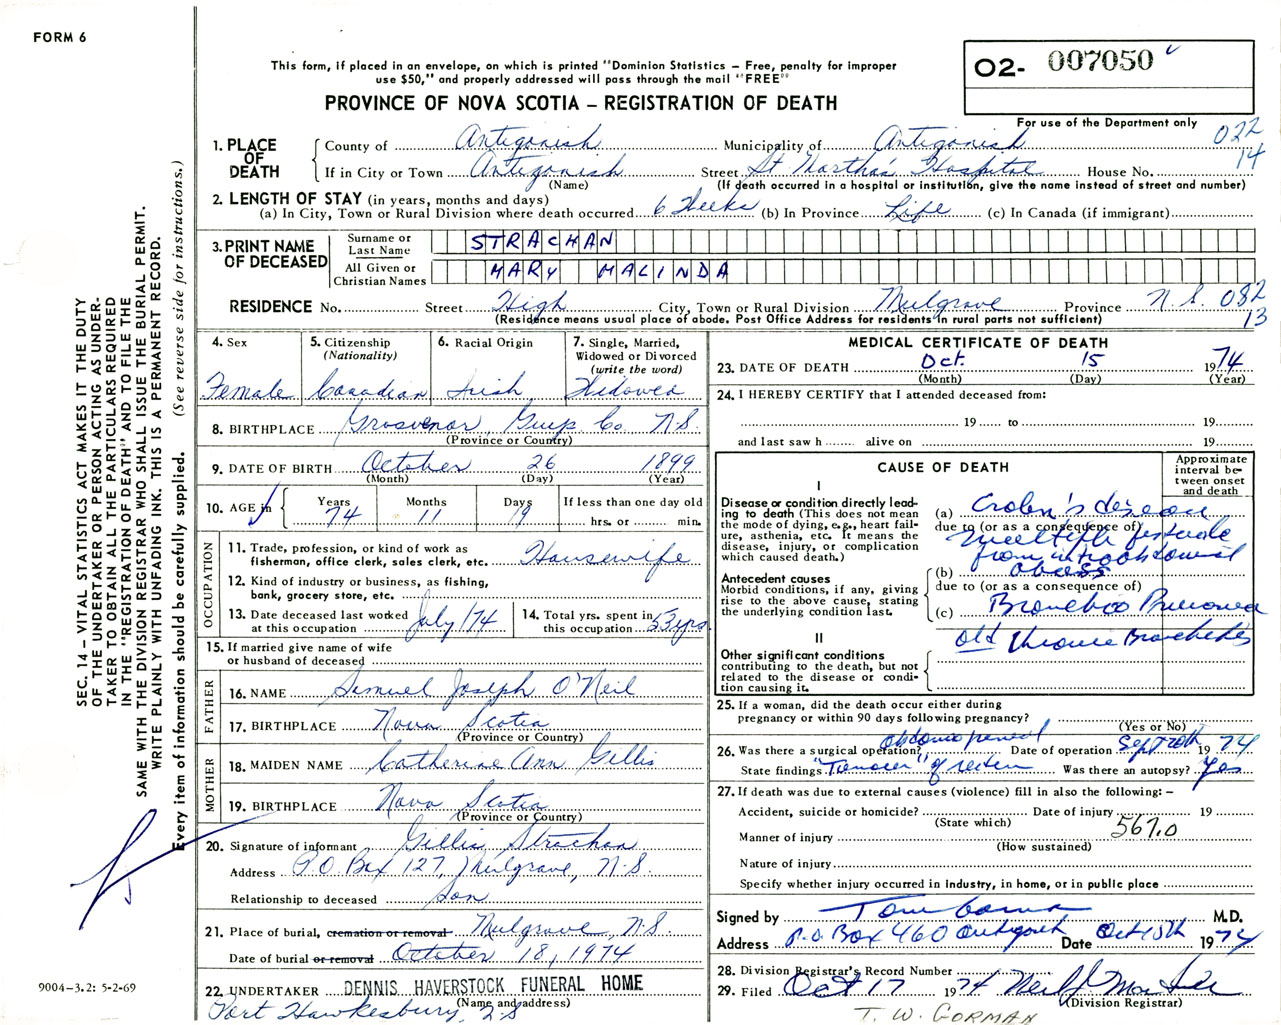 FORM 6
This form, if placed in an envelope, on which is printed "Dominion Statistics – Free, penalty for improper
use $50," and properly addressed will pass through the mail "FREE"
O2- 007050
PROVINCE OF NOVA SCOTIA – REGISTRATION OF DEATH
For use of the Department only
022
14
1. PLACE OF DEATH
County of Antigonish Municipality of Antigonish
If in City or Town Antigonish Street St Martha's Hospital House No.
(Name) (If death occurred in a hospital or institution, give the name instead of street and number)
2. LENGTH OF STAY (in years, months and days)
(a) In City, Town or Rural Division where death occurred 6 Weeks (b) In Province Life (c) In Canada (if immigrant)
3. PRINT NAME OF DECEASED
Surname or Last Name STRACHAN
All Given or Christian Names MARY MALINDA
RESIDENCE No. Street High City, Town or Rural Division Mulgrave Province N.S. 082
13
(Residence means usual place of abode. Post Office Address for residents in rural parts not sufficient)
4. Sex
Female
5. Citizenship
(Nationality)
Canadian
6. Racial Origin
Irish
7. Single, Married,
Widowed or Divorced
(write the word)
Widowed
8. BIRTHPLACE Grosvenor, Guys Co. N.S.
(Province or Country)
9. DATE OF BIRTH October 26 1899
(Month) (Day) (Year)
10. AGE in
Years Months Days If less than one day old
74 11 19 hrs. or min.
OCCUPATION
11. Trade, profession, or kind of work as
fisherman, office clerk, sales clerk, etc. Housewife
12. Kind of industry or business, as fishing,
bank, grocery store, etc.
13. Date deceased last worked
at this occupation July/74
14. Total yrs. spent in
this occupation 53 yrs
15. If married give name of wife
or husband of deceased
FATHER
16. NAME Samuel Joseph O'Neil
17. BIRTHPLACE Nova Scotia
(Province or Country)
MOTHER
18. MAIDEN NAME Catherine Ann Gillis
19. BIRTHPLACE Nova Scotia
(Province or Country)
20. Signature of informant Gillis Strachan
Address P.O. Box 127, Mulgrave, N.S.
Relationship to deceased Son
21. Place of burial, cremation or removal Mulgrave, N.S.
Date of burial or removal October 18, 1974
22. UNDERTAKER DENNIS HAVERSTOCK FUNERAL HOME
(Name and address)
Port Hawkesbury, N.S
MEDICAL CERTIFICATE OF DEATH
23. DATE OF DEATH Oct. 15 1974
(Month) (Day) (Year)
24. I HEREBY CERTIFY that I attended deceased from:
19 to 19
and last saw h alive on 19
CAUSE OF DEATH
Approximate
interval be-
tween onset
and death
I
Disease or condition directly lead-
ing to death (This does not mean
the mode of dying, e.g., heart fail-
ure, asthenia, etc. It means the
disease, injury, or complication
which caused death.)
(a) Crohn's disease
due to (or as a consequence of)
multiple fistula
from intraabdominal
abcess
(b)
Antecedent causes
Morbid conditions, if any, giving
rise to the above cause, stating
the underlying condition last.
due to (or as a consequence of)
(c) Broncho Pneumonia
II
Other significant conditions
contributing to the death, but not
related to the disease or condi-
tion causing it.
old chronic Bronchitis
25. If a woman, did the death occur either during
pregnancy or within 90 days following pregnancy?
(Yes or No)
26. Was there a surgical operation? Date of operation Sept 20th 1974
State findings "Tumour" of Was there an autopsy? Yes
27. If death was due to external causes (violence) fill in also the following: –
Accident, suicide or homicide? Date of injury 19
(State which)
567.0
Manner of injury
(How sustained)
Nature of injury
Specify whether injury occurred in industry, in home, or in public place
Signed by Tom Gorman M.D.
Address P.O. Box 460 Antigonish Date Oct 15th 1974
28. Division Registrar's Record Number
29. Filed Oct 17 1974
(Division Registrar)
T. W. GORMAN
SEC. 14 – VITAL STATISTICS ACT MAKES IT THE DUTY
OF THE UNDERTAKER OR PERSON ACTING AS UNDER-
TAKER TO OBTAIN ALL THE PARTICULARS REQUIRED
IN THE "REGISTRATION OF DEATH" AND TO FILE THE
SAME WITH THE DIVISION REGISTRAR WHO SHALL ISSUE THE BURIAL PERMIT.
WRITE PLAINLY WITH UNFADING INK. THIS IS A PERMANENT RECORD.
Every item of information should be carefully supplied. (See reverse side for instructions.)
9004-3.2: 5-2-69